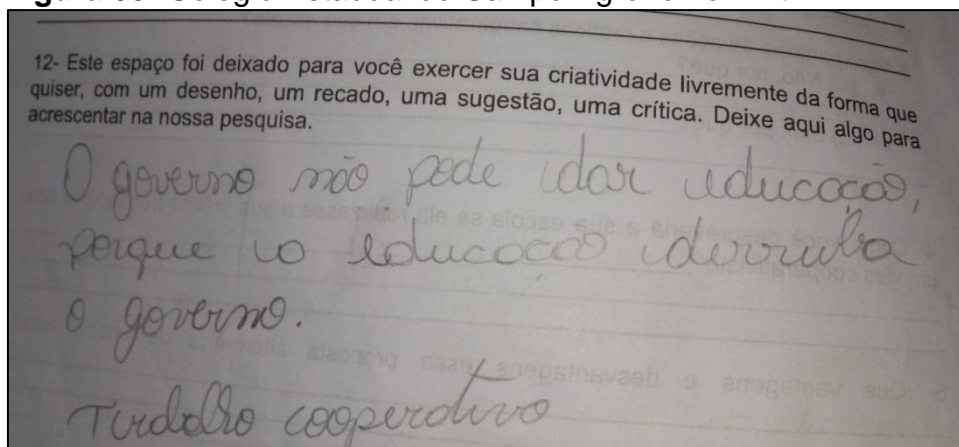 12- Este espaço foi deixado para você exercer sua criatividade livremente da forma que
quiser, com um desenho, um recado, uma sugestão, uma crítica. Deixe aqui algo para
acrescentar na nossa pesquisa.
O governo não pode dar educação,
porque a educação derruba
o governo.
cooperativo